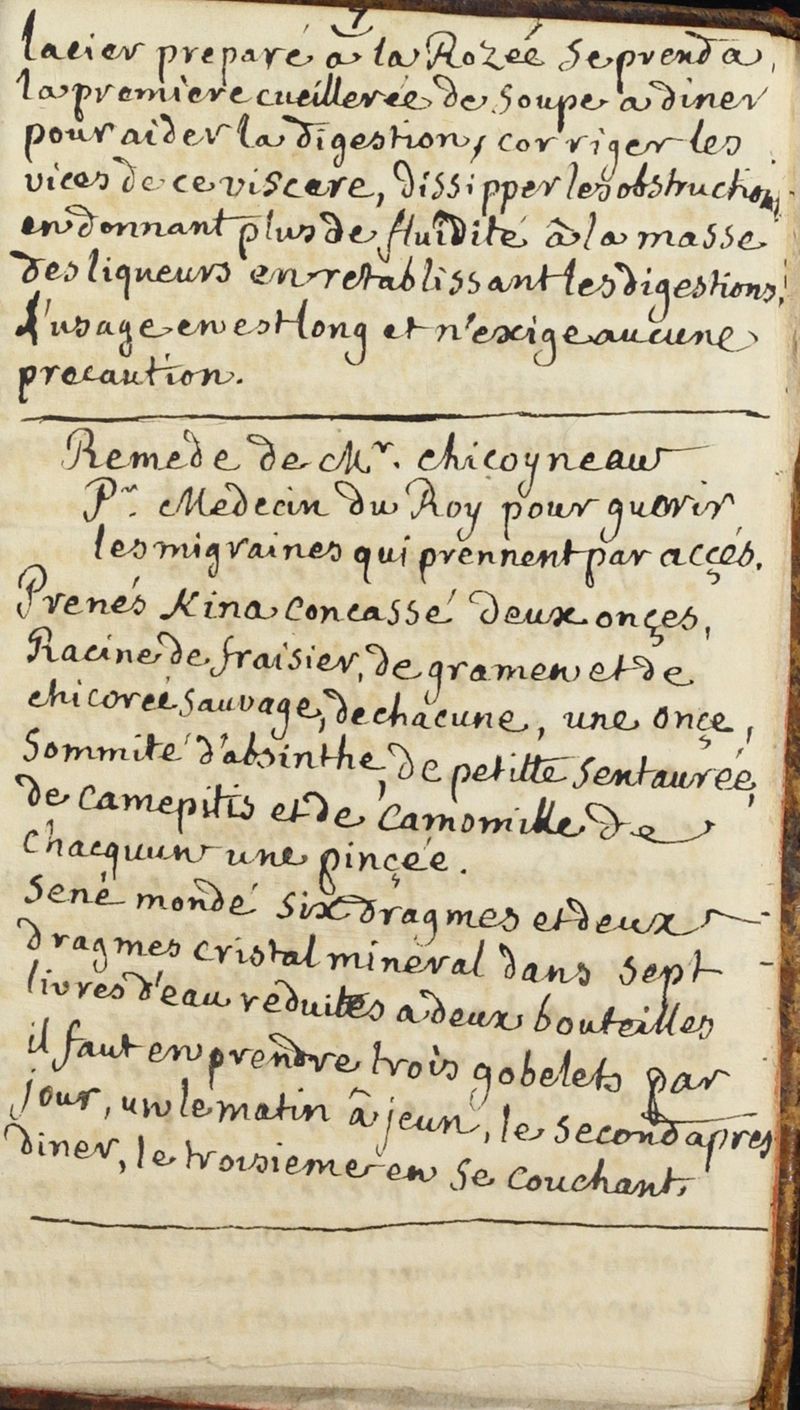 7
lacier preparé a la Rozéé se prend a
la premiere cueillerée de soupe a diner
pour aider la digestion, corriger les
vices de ce viscere, dissipper les obstructions
en donnant plus de fluidité â la masse
des liqueurs en retablissant les digestions.
L'usage en est long et n'exige aucune
precaution.
Remede de Mr. Chicoyneau
Pr. Medecin du Roy pour guerir
les migraines qui prennent par acçés.
Prenés Kina concassé deux onçes,
Racine de fraisier, de gramen et de
chicoreé sauvage, de chacune, une onçe,
Sommité d'absinthe, de petitte sentaurée,
de camepitis et de camomille de
chacquun une pinçée.
Sené mondé six dragmes et deux
dragmes cristal mineral dans sept
livres d'eau reduites a deux bouteilles
il faut en prendre trois gobelets par
jour, un le matin â jeun, le second apres
diner, le troisieme en se couchant.